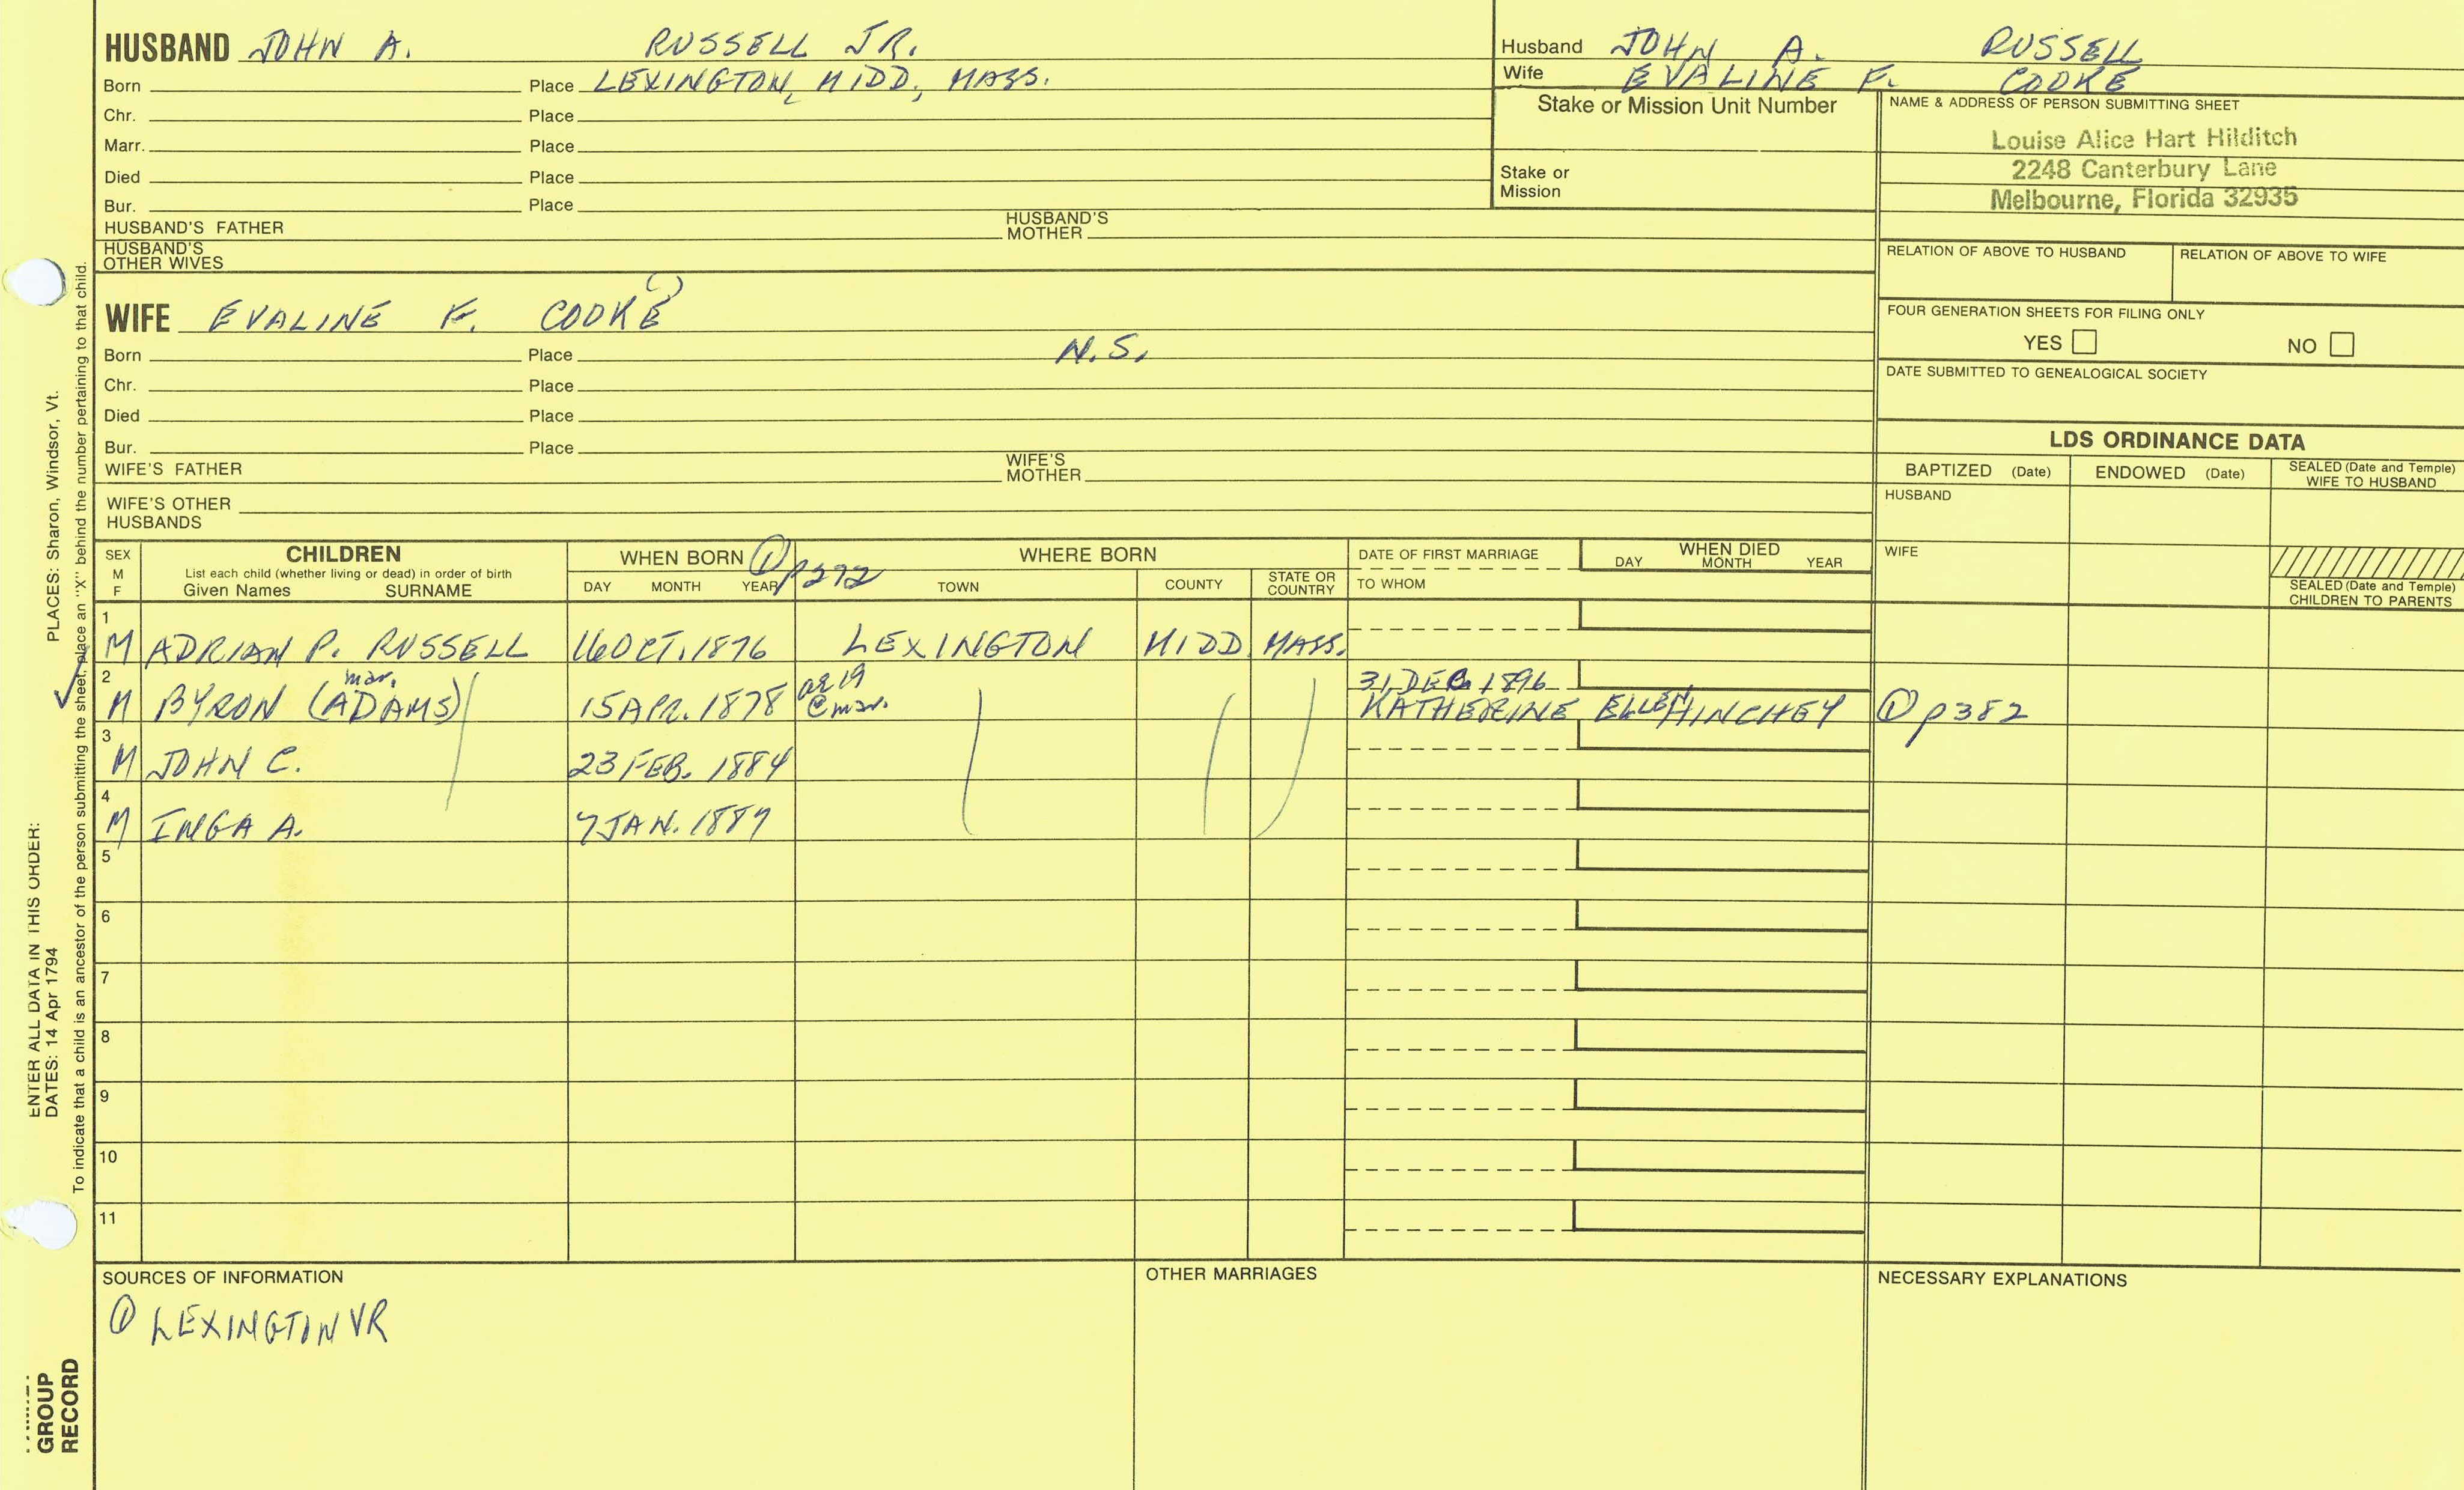 HUSBAND JOHN A. RUSSELL JR.
Born Place LEXINGTON, MIDD., MASS.
Chr. Place
Marr. Place
Died Place
Bur. Place
HUSBAND'S FATHER HUSBAND'S MOTHER
HUSBAND'S OTHER WIVES
Husband JOHN A. RUSSELL
Wife EVALINE F. COOKE
Stake or Mission Unit Number
Stake or
Mission
NAME & ADDRESS OF PERSON SUBMITTING SHEET
Louise Alice Hart Hilditch
2248 Canterbury Lane
Melbourne, Florida 32935
RELATION OF ABOVE TO HUSBAND RELATION OF ABOVE TO WIFE
FOUR GENERATION SHEETS FOR FILING ONLY
YES NO
DATE SUBMITTED TO GENEALOGICAL SOCIETY
WIFE EVALINE F. COOKE
Born Place N.S.
Chr. Place
Died Place
Bur. Place
WIFE'S FATHER WIFE'S MOTHER
WIFE'S OTHER
HUSBANDS
LDS ORDINANCE DATA
BAPTIZED (Date) ENDOWED (Date) SEALED (Date and Temple)
WIFE TO HUSBAND
HUSBAND
WIFE
SEALED (Date and Temple)
CHILDREN TO PARENTS
SEX
M
F
CHILDREN
List each child (whether living or dead) in order of birth
Given Names SURNAME
WHEN BORN ① p272
DAY MONTH YEAR
WHERE BORN
TOWN COUNTY STATE OR COUNTRY
DATE OF FIRST MARRIAGE
TO WHOM
WHEN DIED
DAY MONTH YEAR
1
M ADRIAN P. RUSSELL 16 OCT. 1876 LEXINGTON MIDD. MASS.
2 mar. ae 19 31 DEC. 1896
M BYRON (ADAMS) 15 APR. 1878 @ mar. KATHERINE ELLEN HINCHEY ① p382
3
M JOHN C. 23 FEB. 1884
4
M INGA A. 7 JAN. 1887
5
6
7
8
9
10
11
SOURCES OF INFORMATION
① LEXINGTON VR
OTHER MARRIAGES
NECESSARY EXPLANATIONS
ENTER ALL DATA IN THIS ORDER:
DATES: 14 Apr 1794 PLACES: Sharon, Windsor, Vt.
To indicate that a child is an ancestor of the person submitting the sheet, place an "X" behind the number pertaining to that child.
GROUP
RECORD